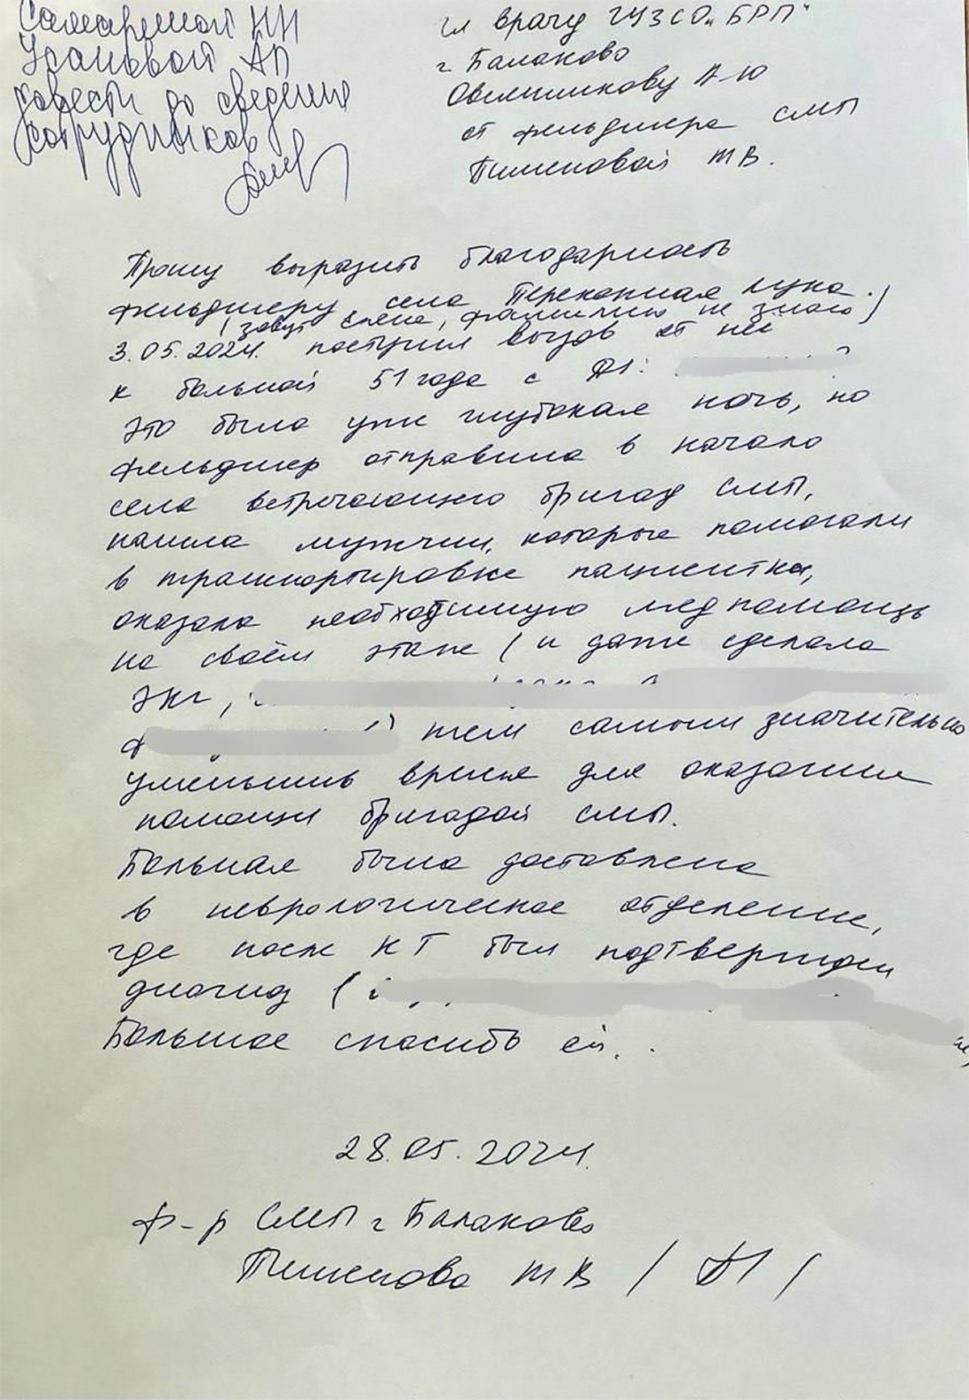 Самаркиной НН
Усановой АП
довести до сведения
сотрудников
гл врачу ГУЗСО „БРП"
г Балаково
Овсянникову А Ю
от фельдшера СМП
Пименовой ТВ.
Прошу выразить благодарность
фельдшеру села Перекопная Лука.
(зовут Елена, фамилию не знаю)
3.05.2024г. поступил вызов от неё
к больной 51 года с DS:
это была уже глубокая ночь, но
фельдшер отправила в начало
села встречающего бригаду СМП,
нашла мужчин, которые помогали
в транспортировке пациентки,
оказала необходимую медпомощь
на своём этапе (и даже сделала
ЭКГ,
) тем самым значительно
уменьшив время для оказания
помощи бригадой СМП.
Больная была доставлена
в неврологическое отделение,
где после КТ был подтверждён
диагноз (
Большое спасибо ей.
28.05.2024.
ф-р СМП г Балаково
Пименова ТВ / /